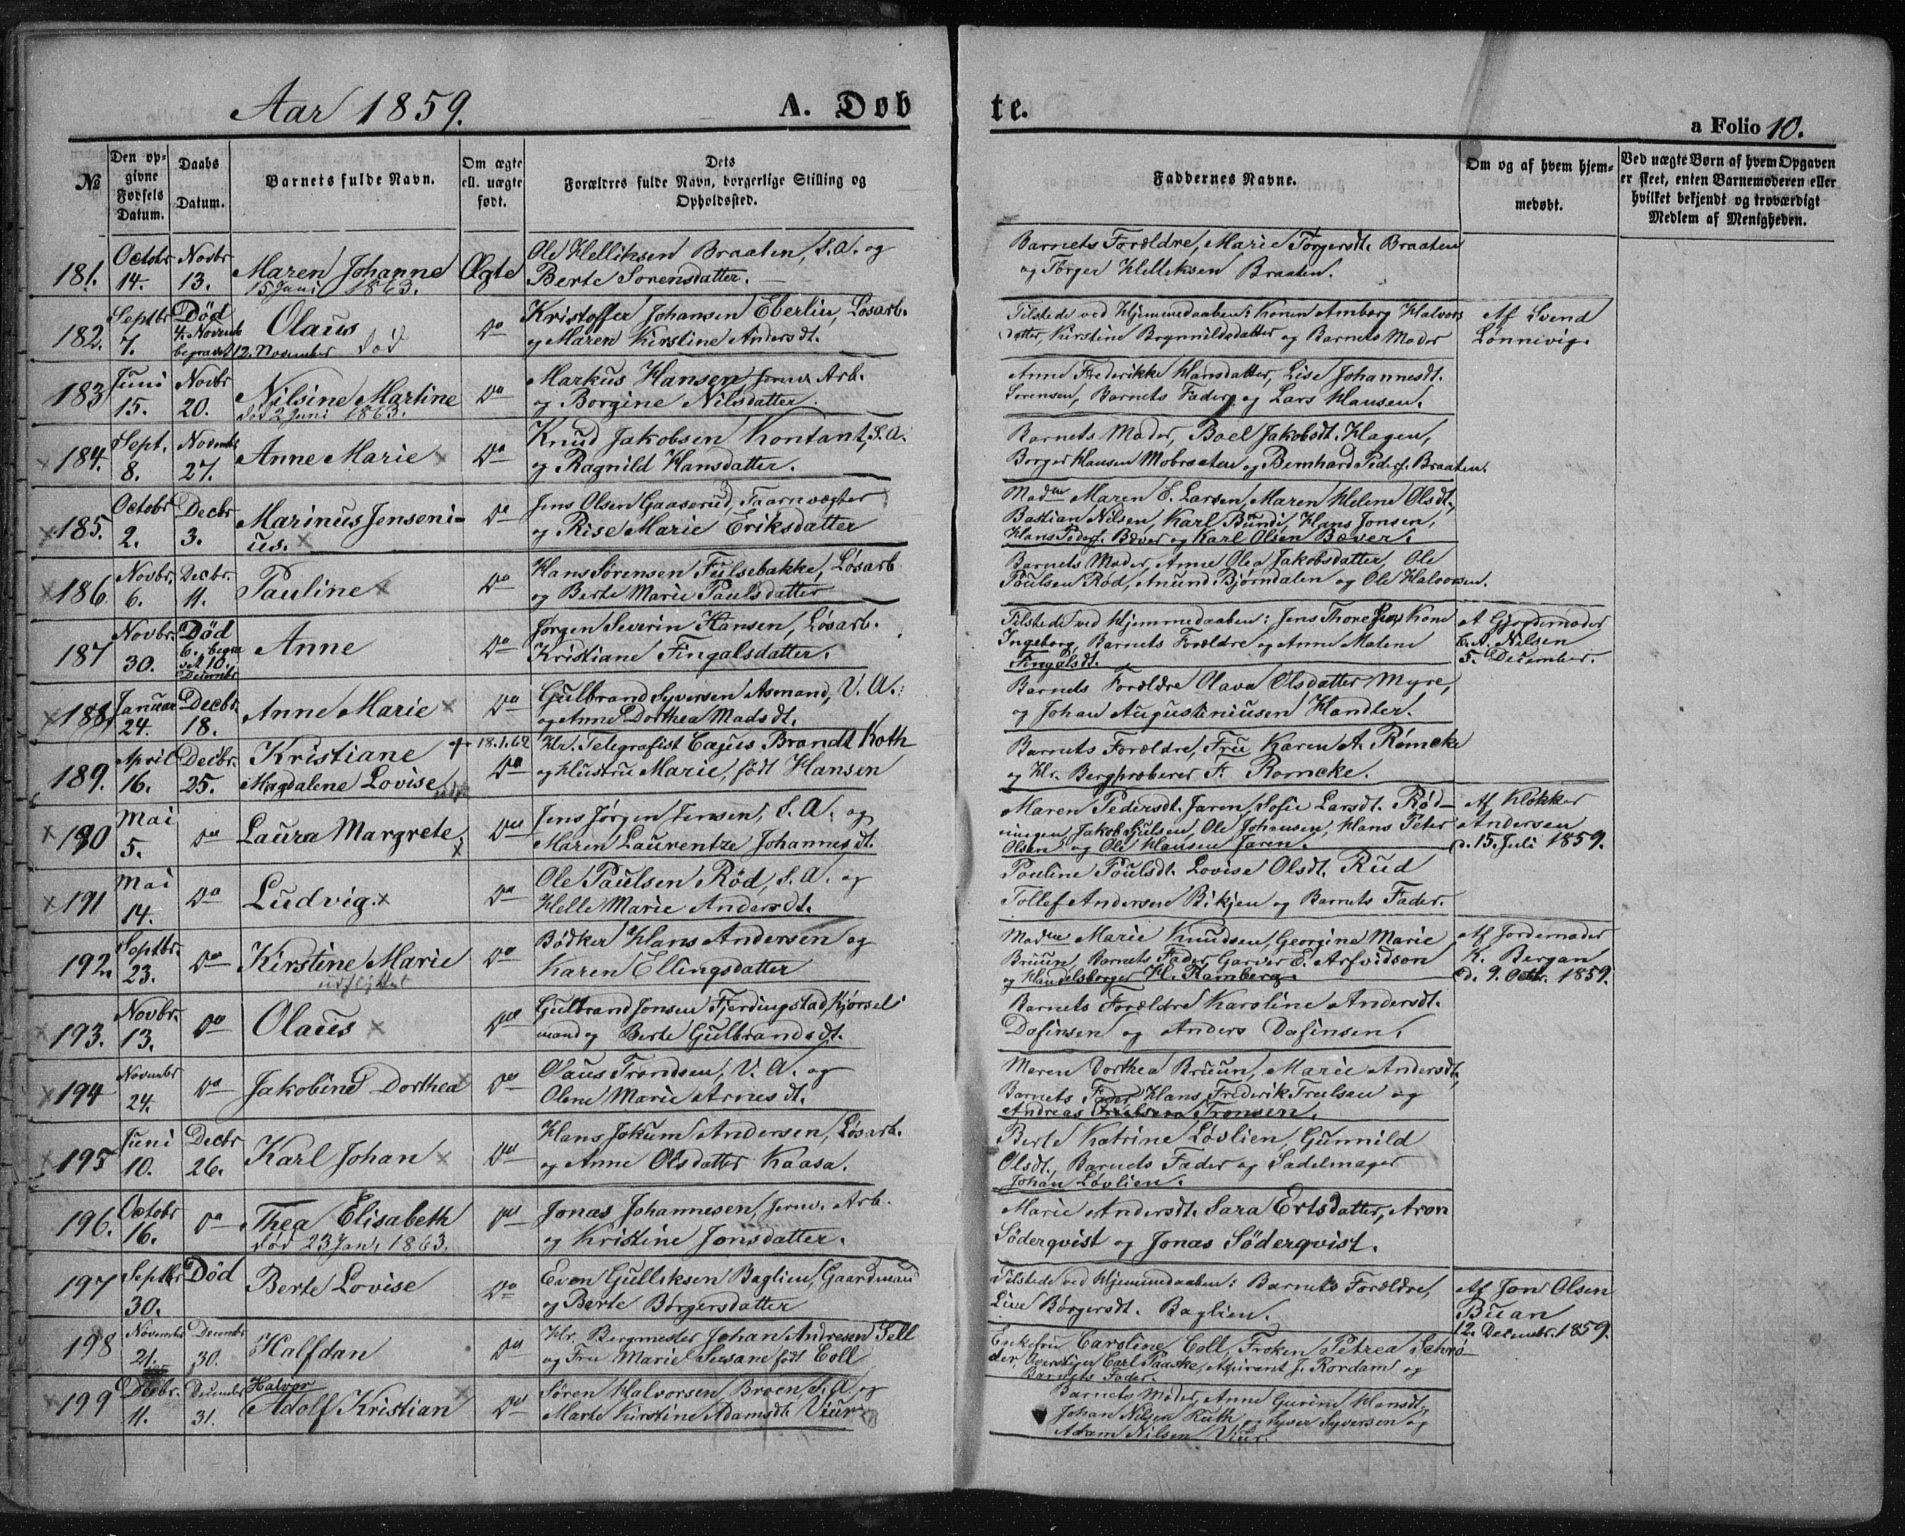 Aar 1859.
A. Døb
te.
a Folio 10.
№
Den op-
givne
Fødsels
Datum.
Daabs
Datum.
Barnets fulde Navn.
Om ægte
ell. uægte
født.
Dets
Forældres fulde Navn, borgerlige Stilling og
Opholdssted.
Faddernes Navne.
Om og af hvem hjem-
medøbt.
Ved uægte Børn af hvem Opgaven
er skeet, enten Barnemoderen eller
hvilket bekjendt og troværdigt
Medlem af Menigheden.
181. Octobr 14. Novbr 13. Maren Johanne Ægte
15 Juni 1863.
Ole Helliksen Braaten, S.A. og
Berte Sorensdatter.
Barnets Forældre, Marie Torgersdt. Braaten
og Torger Helliksen Braaten.
182. Septbr 7. Død 4. Novemb begravet 12. November Olaus død Do
Kristoffer Johansen Eberlin, Løsarb.
og Maren Kirstine Andersdt.
Tilstede ved Hjemmedaaben: Konen Amborg Halvors
datter, Kirstine Brynnildsdatter og Barnets Moder
Af Svend
Lønnivig.
183 Juni 15. Novbr 20. Nilsine Martine Do
død 2 Juni 1863.
Markus Hansen, Jernv Arb.
og Borgine Nilsdatter.
Anne Frederikke Hansdatter, Lise Johannesdt.
Sørensen, Barnets Fader og Lars Hansen.
184. Sept. 8. Novemb 27. Anne Marie Do
Knud Jakobsen Kontant, S.A.
og Ragnild Hansdatter.
Barnets Moder, Boel Jakobsdt. Hagen,
Borger Hansen Mobraaten og Bernhard Peders. Braaten.
185. Octobr 2. Decbr 3. Marinus Jenseni-
us. Do
Jens Olsen Gaaserud, Taarnvægter
og Rise Marie Eriksdatter
Madm Maren E. Larsen, Maren Helene Olsdt.
Bastian Nilsen, Karl Bündi, Hans Jonsen,
Hans Peders. Bæver og Karl Olsen Bæver.
186 Novbr. 6. Decbr. 11. Pauline Do
Hans Sørensen Fulsebakke, Løsarb
og Berte Marie Paulsdatter
Barnets Moder, Anne Olea Jakobsdatter, Ole
Poulsen Rød, Anund Bjørndalen og Ole Halvorsen.
187 Novbr. 30. Død 6. begra
vet 10. Decembr Anne Do
Jørgen Severin Hansen, Løsarb.
Kristiane Fingalsdatter.
Tilstede ved Hjemmedaaben: Jens Thoresens Kone
Ingeborg, Barnets Forældre og Anne Malene
Fingalsdt.
A Gjordemoder
E. A. Nilsen
5. December.
188. Januar 24. Decbr. 18. Anne Marie Do
Gulbrand Syversen Asmand, V.A.
og Anne Dorthea Madsdt.
Barnets Forældre Olava Olsdatter Myre,
og Johan Augustiniusen Handler.
189. April 16. Decbr. 25. Kristiane
Magdalene Lovise + 18.1.62 Do
Hr. Telegrafist Cajus Brandt Koth
og Hustru Marie, født Hansen
Barnets Forældre, Fru Karen A. Rømcke
og Hr. Bergprøberer F. Romcke.
190 Mai 5. Do Laura Margrete. Do
Jens Jørgen Jensen, S.A. og
Maren Laurentze Johannesdt.
Maren Pedersdt. Jaren, Sofie Larsdt. Rød-
ningen, Jakob Gulsen, Ole Johansen, Hans Peter
Olsen og Ole Hansen Jaren.
Af Klokker
Andersen
d. 15. Juli 1859.
191 Mai 14. Do Ludvig. Do
Ole Paulsen Rød, S.A. og
Helle Marie Andersdt.
Pouline Poulsdt. Lovise Olsdt. Rud
Tollef Andersen Bikjen og Barnets Fader.
192. Septbr. 23. Do Kirstine Marie Do
udflyttet
Bødker Hans Andersen og
Karen Ellingsdatter
Madm Marie Knudsen, Georgine Marie
Bruun, Barnets Fader, Garver E. Arfvidson
og Handelsborger H. Ramberg.
Af Jordemoder
K. Bergan
d. 9. Octbr. 1859.
193. Novbr. 13. Do Olaus Do
Gulbrand Jonsen Fjerdingstad, Kjørsel
mand og Berte Gulbrandsdt.
Barnets Forældre Karoline Andersdt.
Dafinsen og Anders Dafinsen.
194 November 24. Do Jakobine Dorthea Do
Olaus Trondsen, V.A. og
Olene Marie Arnesdt.
Maren Dorthea Bruun, Marie Andersdt,
Barnets Fader, Hans Frederik Truelsen og
Andreas Tronsen.
195 Juni 10. Decbr 26. Karl Johan Do
Hans Jokum Andersen, Løsarb.
og Anne Olsdatter Kaasa.
Berte Katrine Løvlien, Gunnild
Olsdt., Barnets Fader og Sadelmager
Johan Løvlien.
196. Octobr 16. Do Thea Elisabeth Do
død 23 Jan. 1863.
Jonas Johannesen, Jernv. Arb.
og Kristine Jonsdatter.
Marie Andersdt. Sara Ertsdatter, Aron
Söderqvist og Jonas Söderqvist.
197 Septbr 30. Død Berte Lovise Do
Even Gulliksen Baglien, Gaardmand
og Berte Børgersdatter
Tilstede ved Hjemmedaaben: Barnets Forældre,
Live Børgersdt. Baglien.
Af Jon Olsen
Buan
12. Decembr. 1859.
198 November 21. Decembr 30. Halfdan Do
Hr. Bergmester Johan Andresen Tell
og Fru Marie Susane født Coll
Enkefru Caroline Coll, Frøken Petrea Schrø-
der, Overstiger Carl Paaske, Aspirant J. Rordam og
Barnets Fader.
199 Decbr. 11. December 31. Halvor
Adolf Kristian Do
Søren Halvorsen Broen, S.A. og
Marte Kirstine Adamsdt. Viur
Barnets Moder, Anne Gurine Hansdt,
Johan Nilsen Ruth og Syver Syversen og
Adam Nilsen Viur.